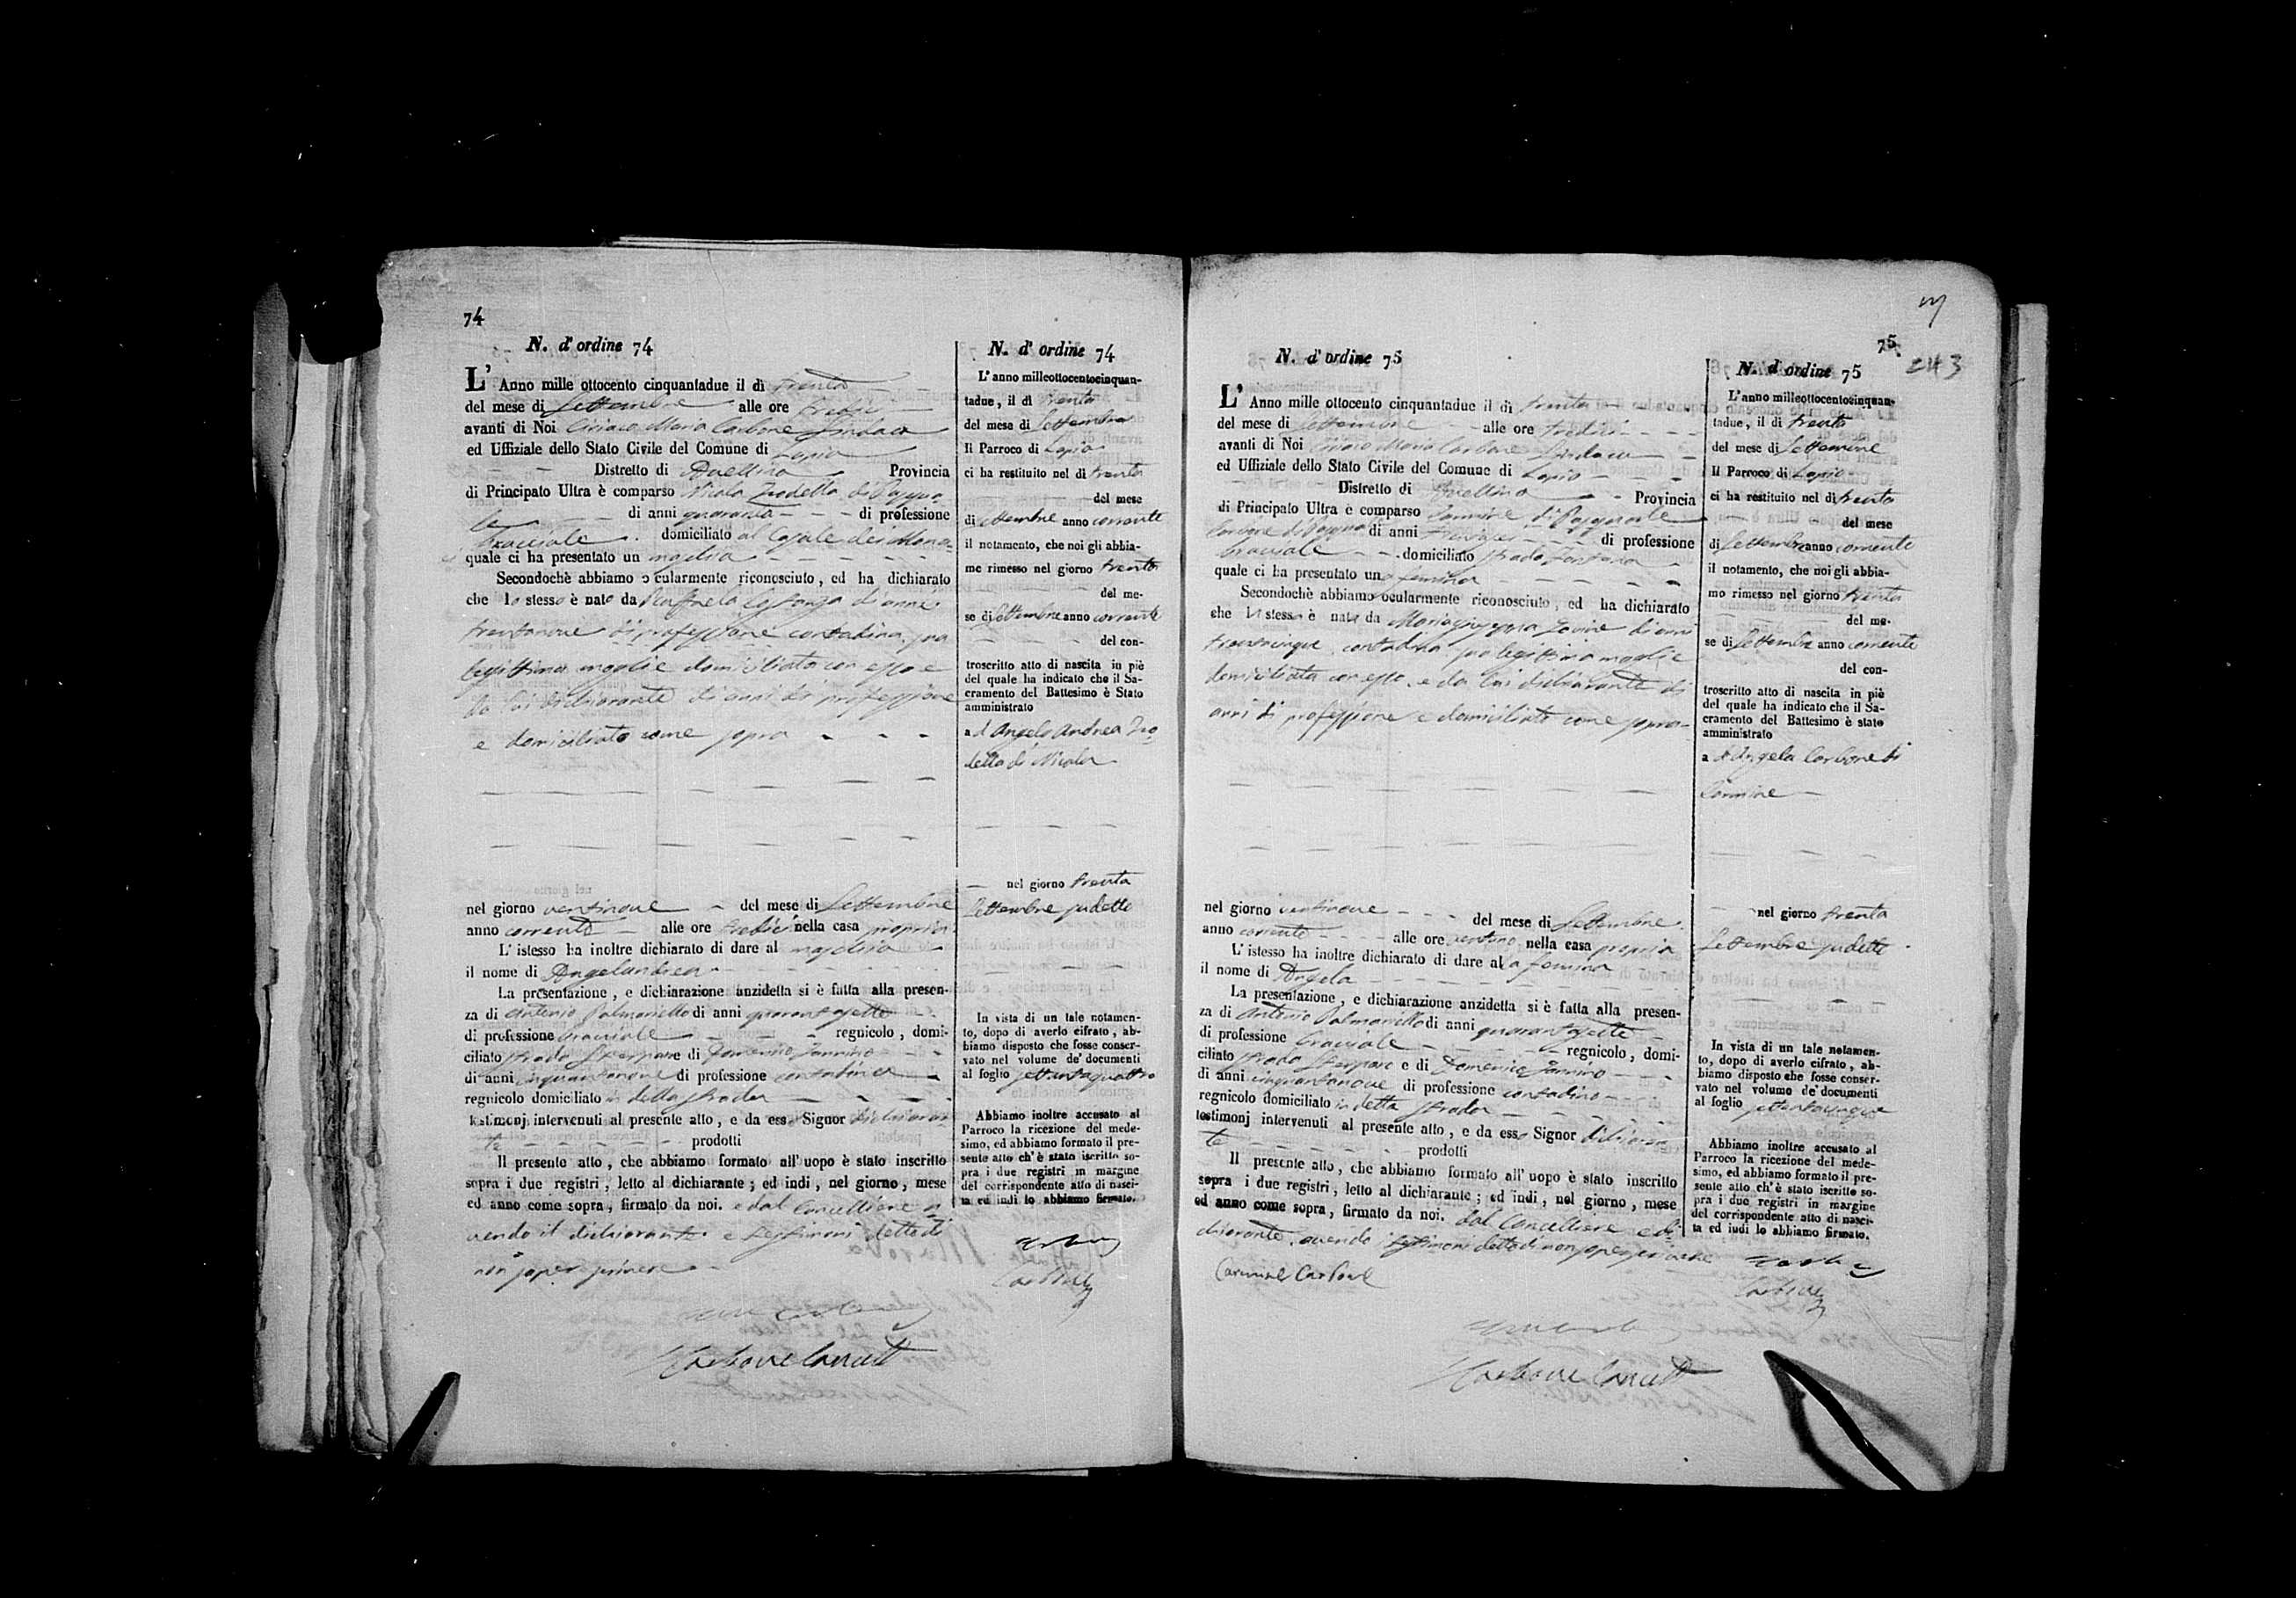 74
N. d' ordine 74
L' Anno mille ottocento cinquantadue il dì trenta
del mese di Settembre alle ore tredici
avanti di Noi Ciriaco Maria Carbone Sindaco
ed Uffiziale dello Stato Civile del Comune di Lapio
Distretto di Avellino Provincia
di Principato Ultra è comparso Nicola di Pasqua
le di anni quaranta di professione
bracciale domiciliato al Casale dei
quale ci ha presentato un maschio
Secondochè abbiamo ocularmente riconosciuto, ed ha dichiarato
che lo stesso è nato da Raffaela di anni
trentanove di professione contadina sua
legittima moglie domiciliata con esso e
da lui dichiarante di anni di professione
e domiciliato come sopra
nel giorno ventinove del mese di Settembre
anno corrente alle ore tredici nella casa propria
L' istesso ha inoltre dichiarato di dare al maschio
il nome di Angelandrea
La presentazione, e dichiarazione anzidetta si è fatta alla presen-
za di Antonio Palmariello di anni quarantasette
di professione bracciale regnicolo, domi-
ciliato strada e di Domenico Iannino
di anni cinquantanove di professione contadino
regnicolo domiciliato in detta strada
testimonj intervenuti al presente atto, e da esso Signor dichiaran
te prodotti
Il presente atto, che abbiamo formato all' uopo è stato inscritto
sopra i due registri, letto al dichiarante; ed indi, nel giorno, mese
ed anno come sopra, firmato da noi. e dal Cancelliere a
vendo il dichiarante e testimoni detto di
non saper scrivere
Carbone Cancell
N. d' ordine 74
L' anno milleottocentocinquan-
tadue, il dì trenta
del mese di Settembre
Il Parroco di Lapio
ci ha restituito nel dì trenta
del mese
di Settembre anno corrente
il notamento, che noi gli abbia-
mo rimesso nel giorno trenta
del me-
se di Settembre anno corrente
del con-
troscritto atto di nascita in piè
del quale ha indicato che il Sa-
cramento del Battesimo è Stato
amministrato
a d Angelo Andrea
di Nicola
nel giorno trenta
Settembre sudetto
In vista di un tale notamen-
to, dopo di averlo cifrato, ab-
biamo disposto che fosse conser-
vato nel volume de' documenti
al foglio settantaquattro
Abbiamo inoltre accusato al
Parroco la ricezione del mede-
simo, ed abbiamo formato il pre-
sente atto ch' è stato iscritto so-
pra i due registri in margine
del corrispondente atto di nasci-
ta ed indi lo abbiamo firmato.
Carbone
75
243
N. d' ordine 75
L' Anno mille ottocento cinquantadue il dì trenta
del mese di Settembre alle ore tredici
avanti di Noi Ciriaco Maria Carbone Sindaco
ed Uffiziale dello Stato Civile del Comune di Lapio
Distretto di Avellino Provincia
di Principato Ultra è comparso Carmine di Pasquale
Carbone di Pasquale di anni di professione
bracciale domiciliato strada Fontana
quale ci ha presentato una femina
Secondochè abbiamo ocularmente riconosciuto, ed ha dichiarato
che la stessa è nata da Mariagiuseppa di anni
trentacinque contadina sua legittima moglie
domiciliata con esso, e da lui dichiarante di
anni di professione e domiciliato come sopra
nel giorno ventinove del mese di Settembre
anno corrente alle ore ventuno nella casa propria
L' istesso ha inoltre dichiarato di dare alla femina
il nome di Angela
La presentazione, e dichiarazione anzidetta si è fatta alla presen-
za di Antonio Palmariello di anni quarantasette
di professione bracciale regnicolo, domi-
ciliato strada e di Domenico Iannino
di anni cinquantanove di professione contadino
regnicolo domiciliato in detta strada
testimonj intervenuti al presente atto, e da esso Signor dichiaran
te prodotti
Il presente atto, che abbiamo formato all' uopo è stato inscritto
sopra i due registri, letto al dichiarante; ed indi, nel giorno, mese
ed anno come sopra, firmato da noi. dal Cancelliere e di
chiarante, avendo i testimoni detto di non saper scrivere
Carmine Carbone
Carbone Cancell
N. d' ordine 75
L' anno milleottocentocinquan-
tadue, il dì trenta
del mese di Settembre
Il Parroco di Lapio
ci ha restituito nel dì trenta
del mese
di Settembre anno corrente
il notamento, che noi gli abbia-
mo rimesso nel giorno trenta
del me-
se di Settembre anno corrente
del con-
troscritto atto di nascita in piè
del quale ha indicato che il Sa-
cramento del Battesimo è stato
amministrato
a d Angela Carbone di
Carmine
nel giorno trenta
Settembre sudetto
In vista di un tale notamen-
to, dopo di averlo cifrato, ab-
biamo disposto che fosse conser-
vato nel volume de' documenti
al foglio settantacinque
Abbiamo inoltre accusato al
Parroco la ricezione del mede-
simo, ed abbiamo formato il pre-
sente atto ch' è stato iscritto so-
pra i due registri in margine
del corrispondente atto di nasci-
ta ed indi lo abbiamo firmato.
Carbone